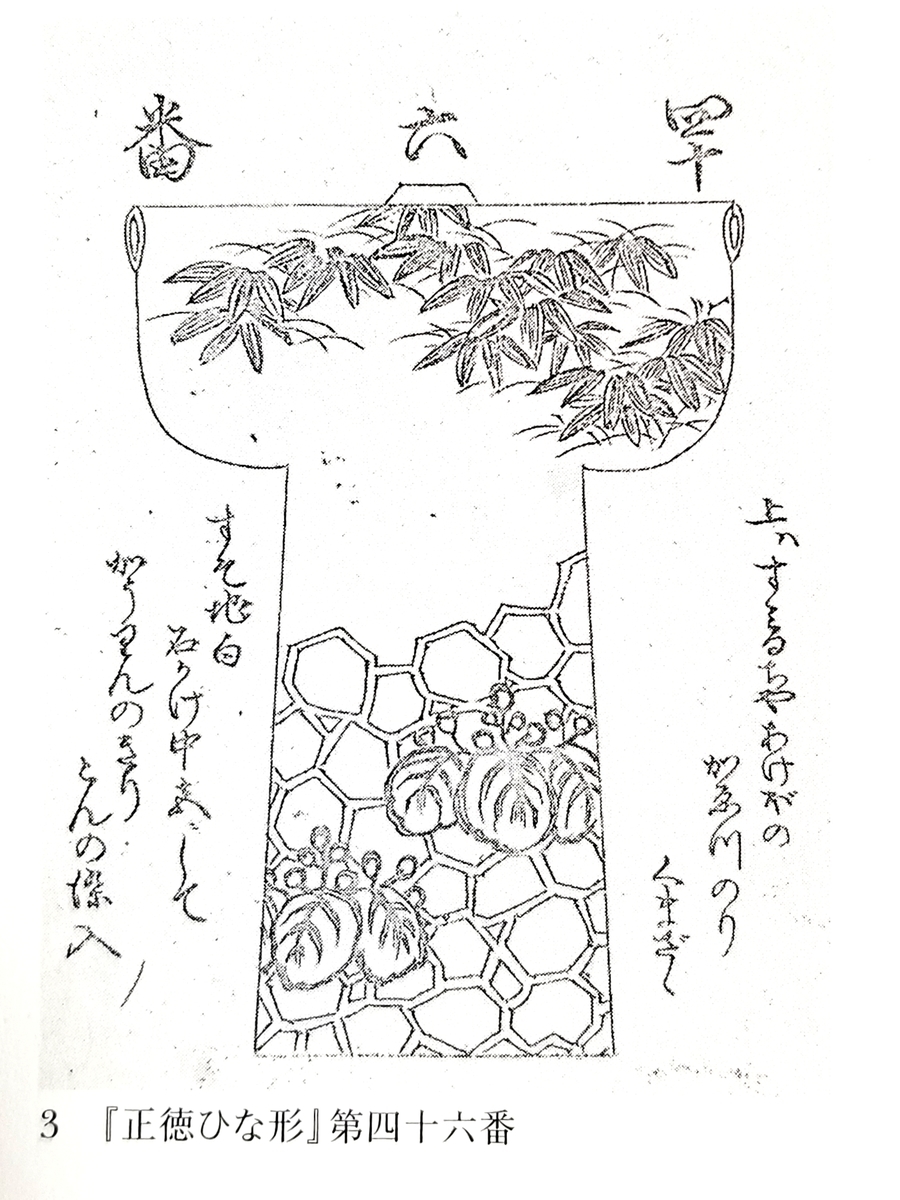 四十
六
番
上ハすみるちや
川のり
くまざゝ
すそ地白
石かけ中して
かうりんのきり
こんの入
3 『正徳ひな形』第四十六番